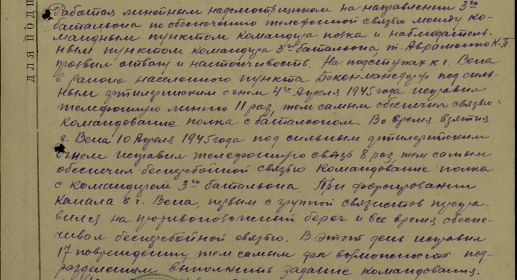 Работая линейным надсмотрщиком на направлении 3го
батальона по обеспечению телефонной связью между ко-
мандным пунктом командира полка и наблюдатель-
ным пунктом командира 3го батальона т. Авраменко
проявил отвагу и настойчивость. На подступах к г. Вена
в районе населенного пункта под силь-
ным артиллерийским огнем 4го Апреля 1945 года исправил
телефонную линию 11 раз, тем самым обеспечил связью
командование полка с батальоном. Во время взятия
г. Вена 10 Апреля 1945 года под сильным артиллерийским
огнем исправил телефонную связь 8 раз, тем самым
обеспечил бесперебойной связью командование полка
с командиром 3го батальона. При форсировании
канала в г. Вена, первым с группой связистов переправ-
вился на противоположный берег и все время обеспе-
чивал бесперебойной связью. В этот день исправил
17 повреждений, тем самым дал возможность под-
разделениям выполнить задание командования.
для подши